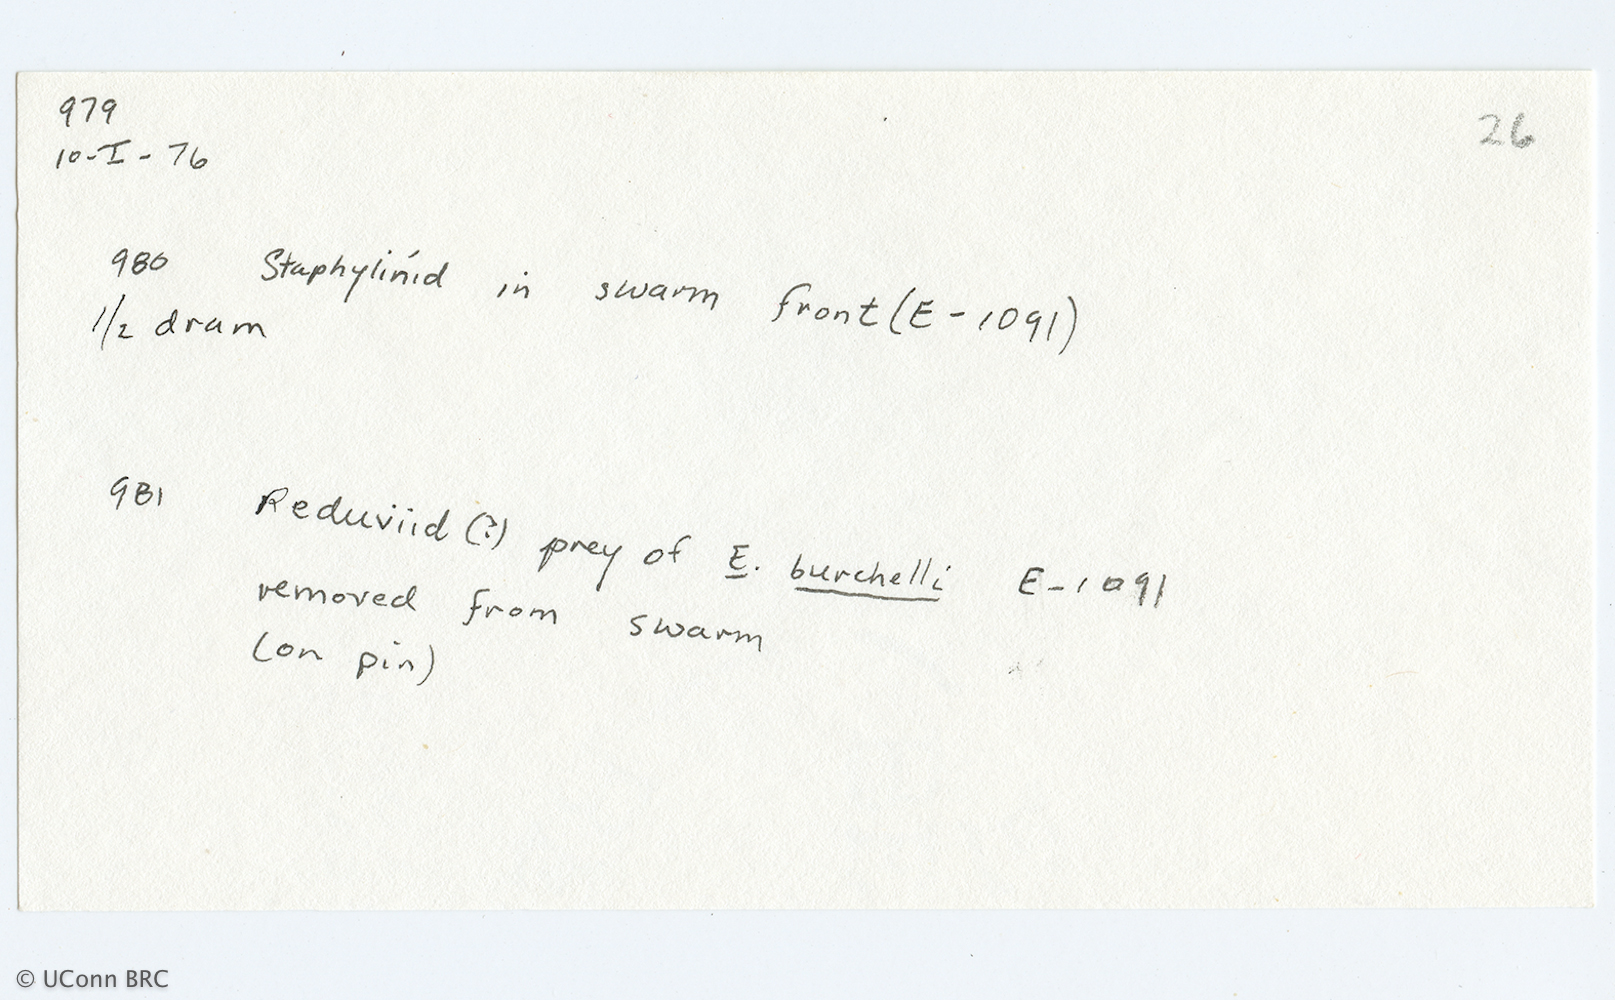 979
26
10-I-76
980 Staphylinid in swarm front (E-1091)
1/2 dram
981 Reduviid (?) prey of E. burchelli E-1091
removed from swarm
(on pin)
© UConn BRC